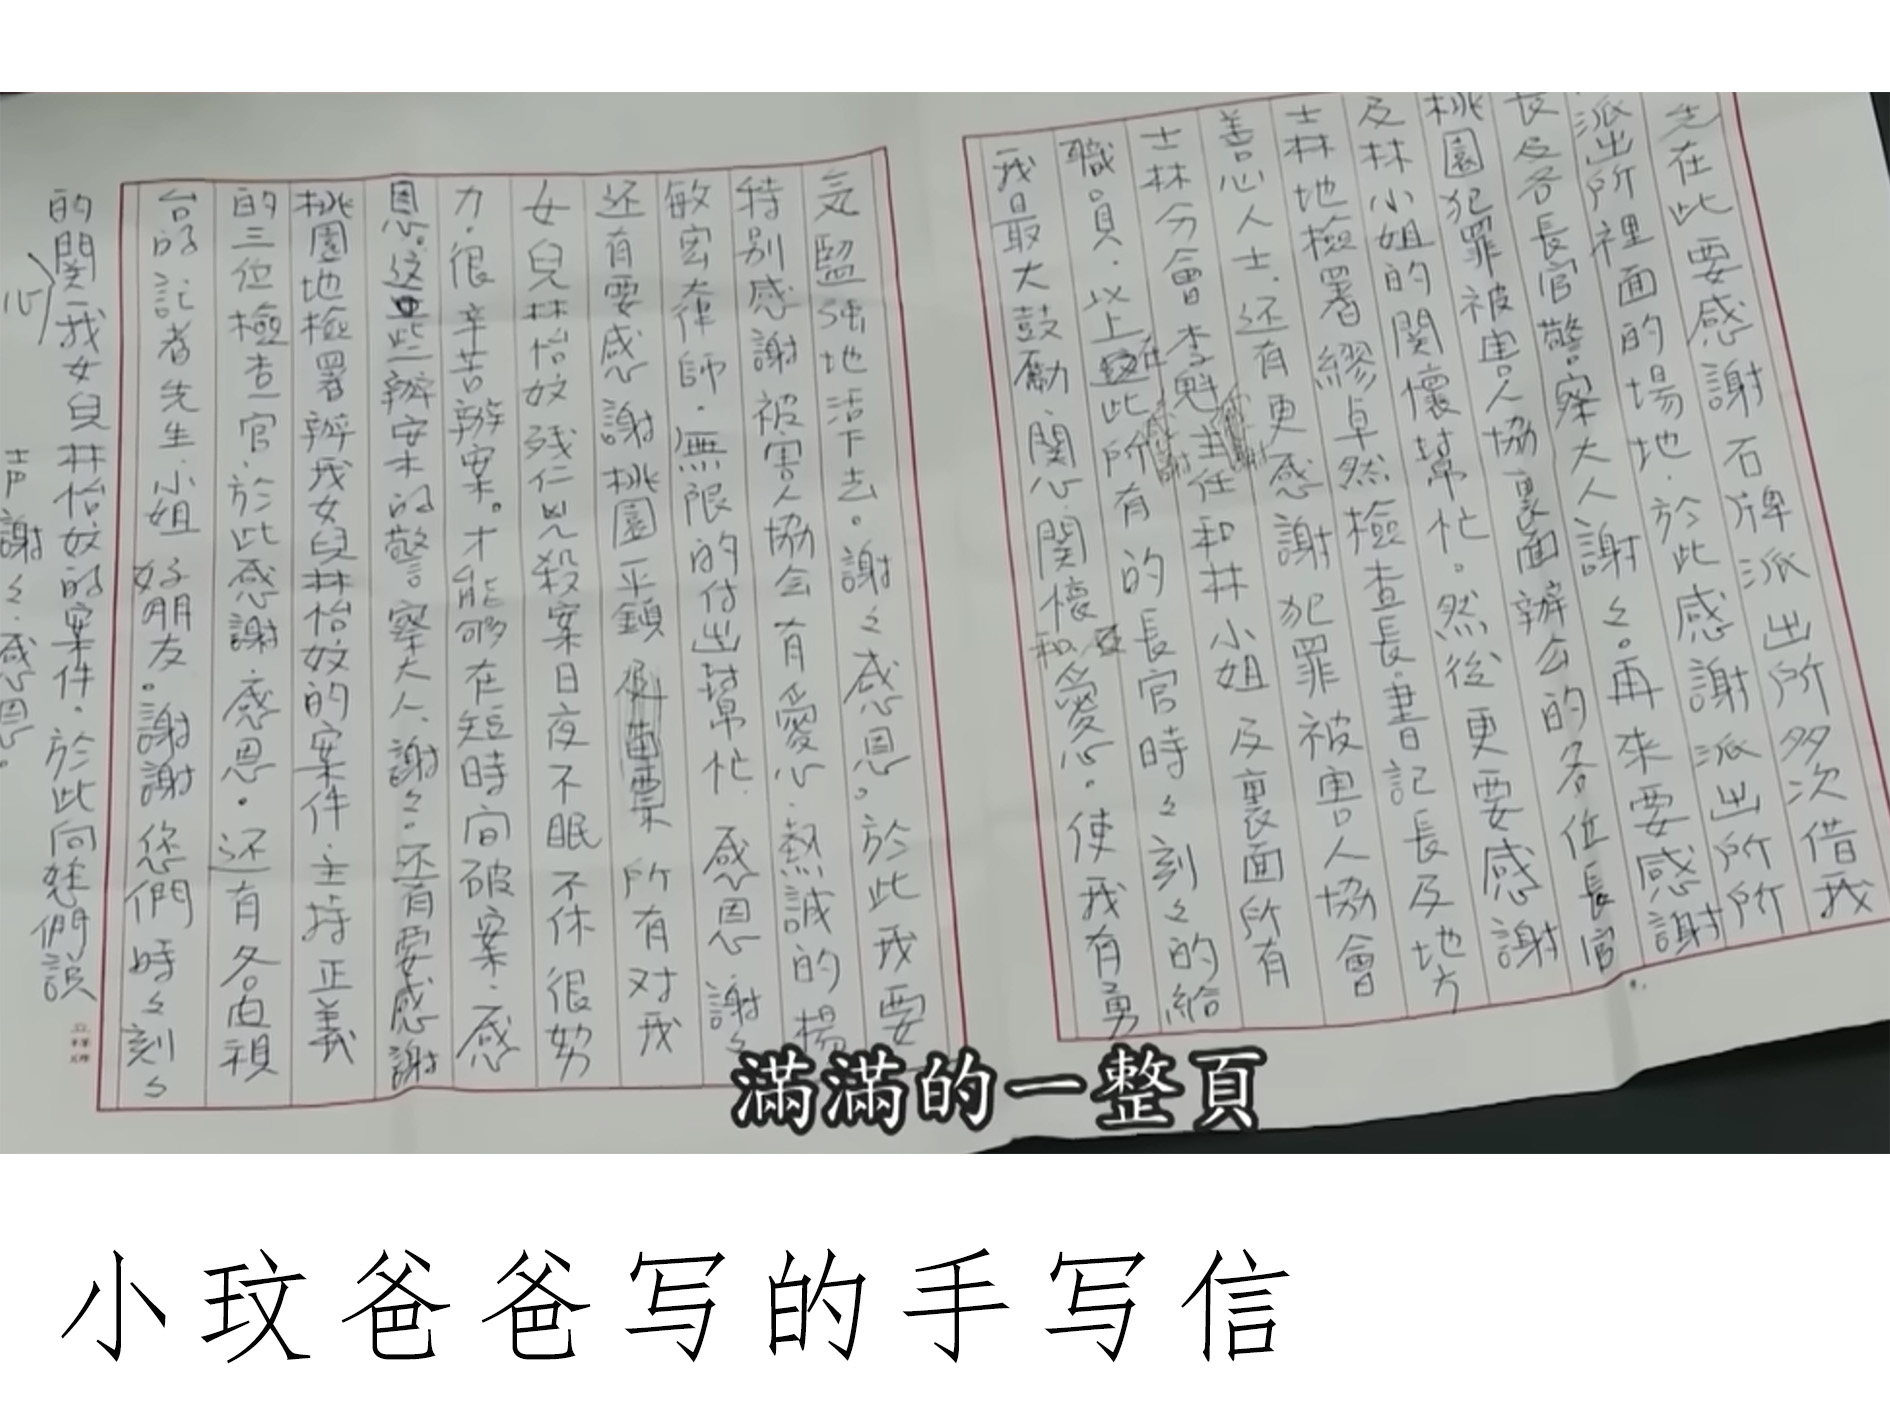 先在此要感謝石牌派出所多次借我
派出所裡面的場地.於此感謝派出所所
長及各長官警察大人謝々。再來要感謝
桃園犯罪被害人協裏面辦公的各位長官
及林小姐的関懷幫忙。然後更要感謝
士林地檢署繆卓然檢查長.書記長及地方
善心人士.还有更感謝犯罪被害人協會
士林分會李魁主任和林小姐及裏面所有
職員.以上在此所有的長官時々刻々的給
我最大鼓勵関心関懷和愛心。使我有勇
気堅強地活下去。謝々感恩。於此我要
特別感謝被害人協会有愛心.熱誠的楊
敏宏大律師.無限的付出幫忙.感恩.謝々
还有要感謝桃園平鎮所有对我
女兒林怡妏残仁兇殺案日夜不眠不休很努
力.很辛苦辦案。才能夠在短時间破案.感
恩。这些辦案未的警察大人.謝々。还有要感謝
桃園地檢署辦我女兒林怡妏的案件.主持正義
的三位檢查官.於此感謝.感恩。还有各电視
台的記者先生.小姐好朋友。謝謝您們時々刻々
的関心我女兒林怡妏的案件。於此向您們說
声謝々.感恩。
滿滿的一整頁
小玟爸爸写的手写信